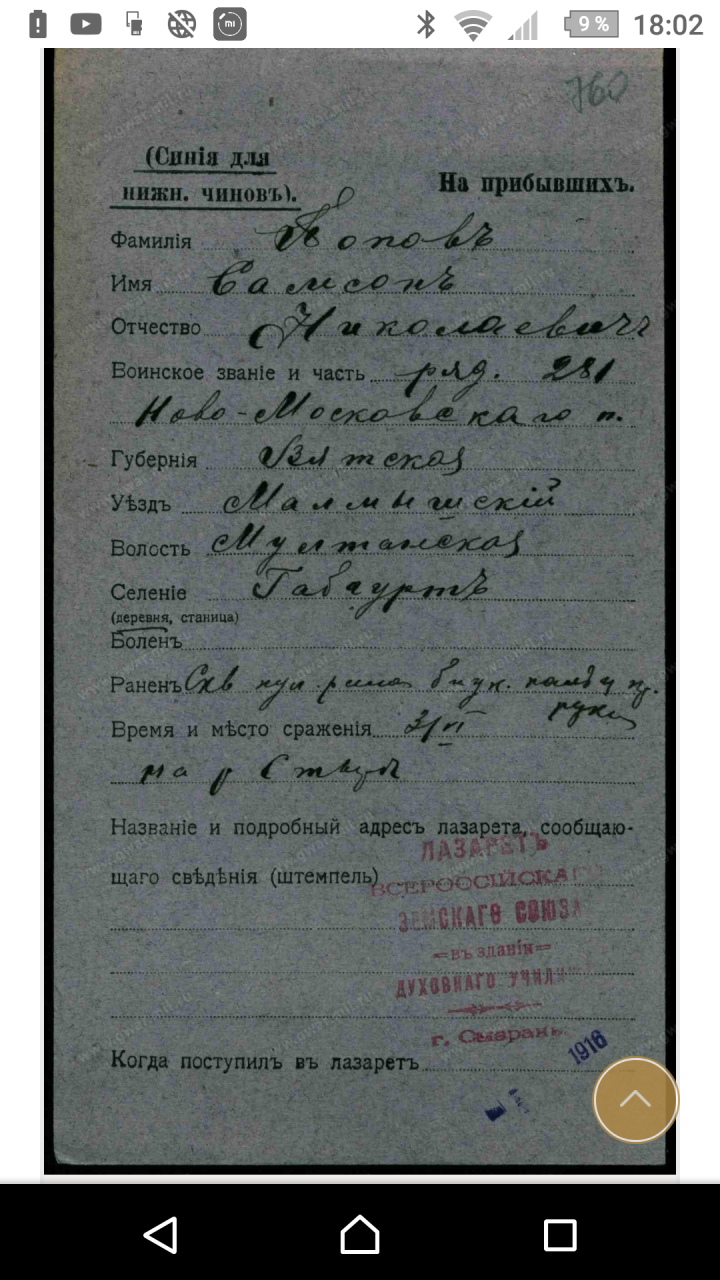 9 %
18:02
760
(Синія для
нижн. чиновъ).
На прибывшихъ.
Фамилія Поповъ
Имя Самсонъ
Отчество Николаевичъ
Воинское званіе и часть ряд. 281
Ново-Московскаго п.
Губернія Вятская
Уѣздъ Малмышскій
Волость Мултанская
Селеніе
(деревня, станица)
Боленъ
Раненъ Скв пул рана
руки
Время и мѣсто сраженія 3/VI
на р
Названіе и подробный адресъ лазарета, сообщаю-
щаго свѣдѣнія (штемпель)
ЛАЗАРЕТЪ
ВСЕРОССІЙСКАГО
ЗЕМСКАГО СОЮЗА
=въ зданіи=
ДУХОВНАГО УЧИЛ
г. Сызрань
Когда поступилъ въ лазаретъ
1916